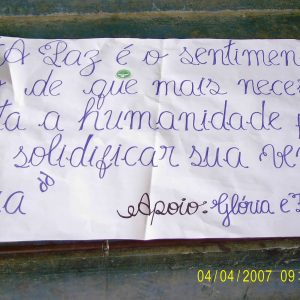 A Paz é o sentimen
de que mais neces
ta a humanidade
solidificar sua ve
a
Apoio: Glória e
04/04/2007 09